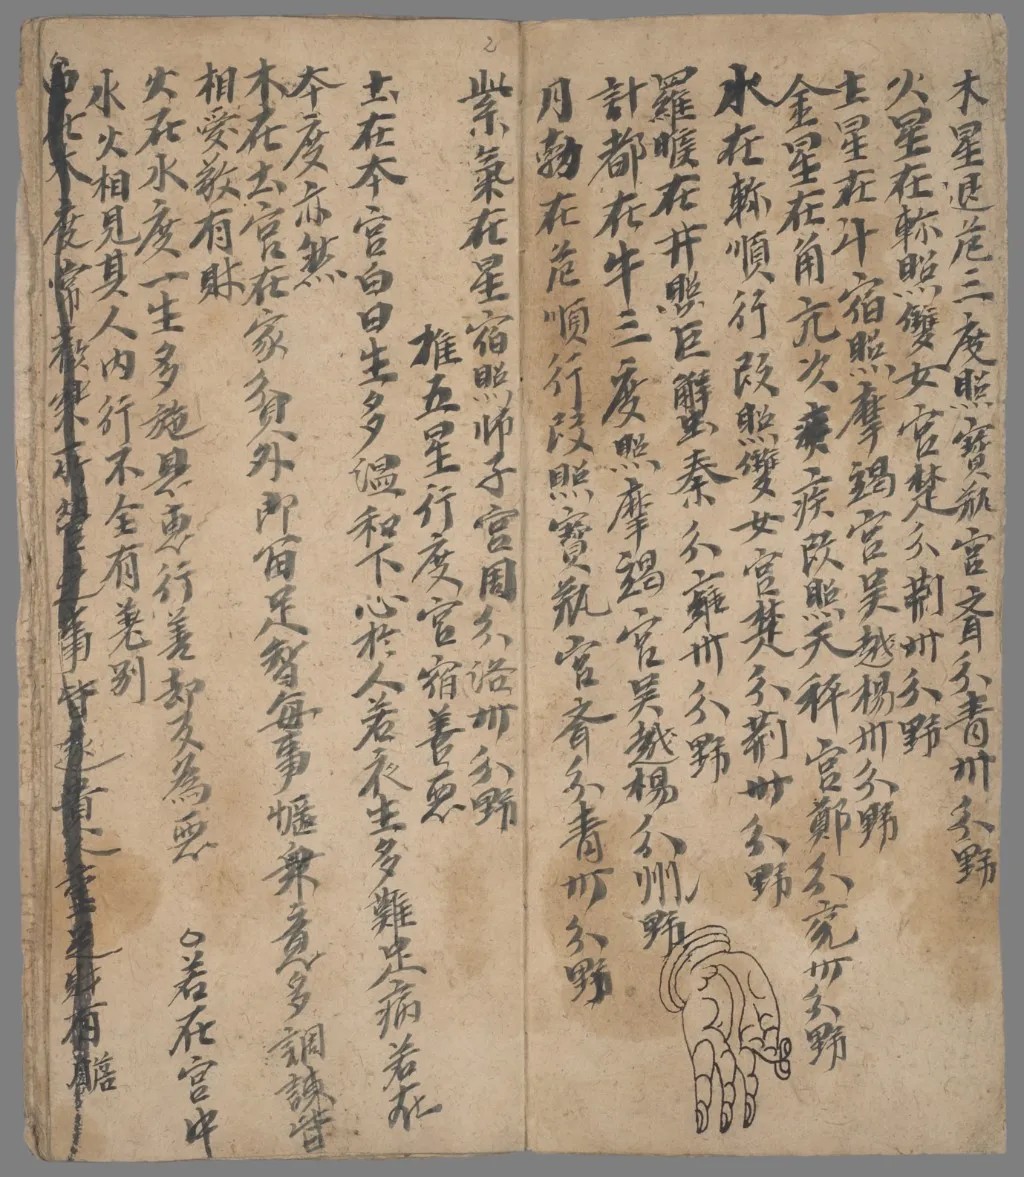 木星退危三度照寶瓶宮齊分青州分野
火星在軫照雙女宮楚分荊州分野
土星在斗宿照摩竭宮吳越楊州分野
金星在角亢次疾改照天秤宮鄭分兗州分野
水在軫順行改照雙女宮楚分荊州分野
羅睺在井照巨蟹秦分雍州分野
計都在牛三度照摩竭宮吳越楊分州野
月勃在危順行改照寶瓶宮齊分青州分野
紫氣在星宿照師子宮周分洛州分野
推五星行度宮宿善惡
土在本宮白日生多溫和下心於人若衣生多難足病若在
本度亦然
木在土宮在家貧外即富足智每事愜衆意多調諫皆
相愛敬有財
火在水度一生多施恩惠行善却反為惡
若在宮中
水火相見其人內行不全有
別
木度常歡樂所
事皆
財有
2